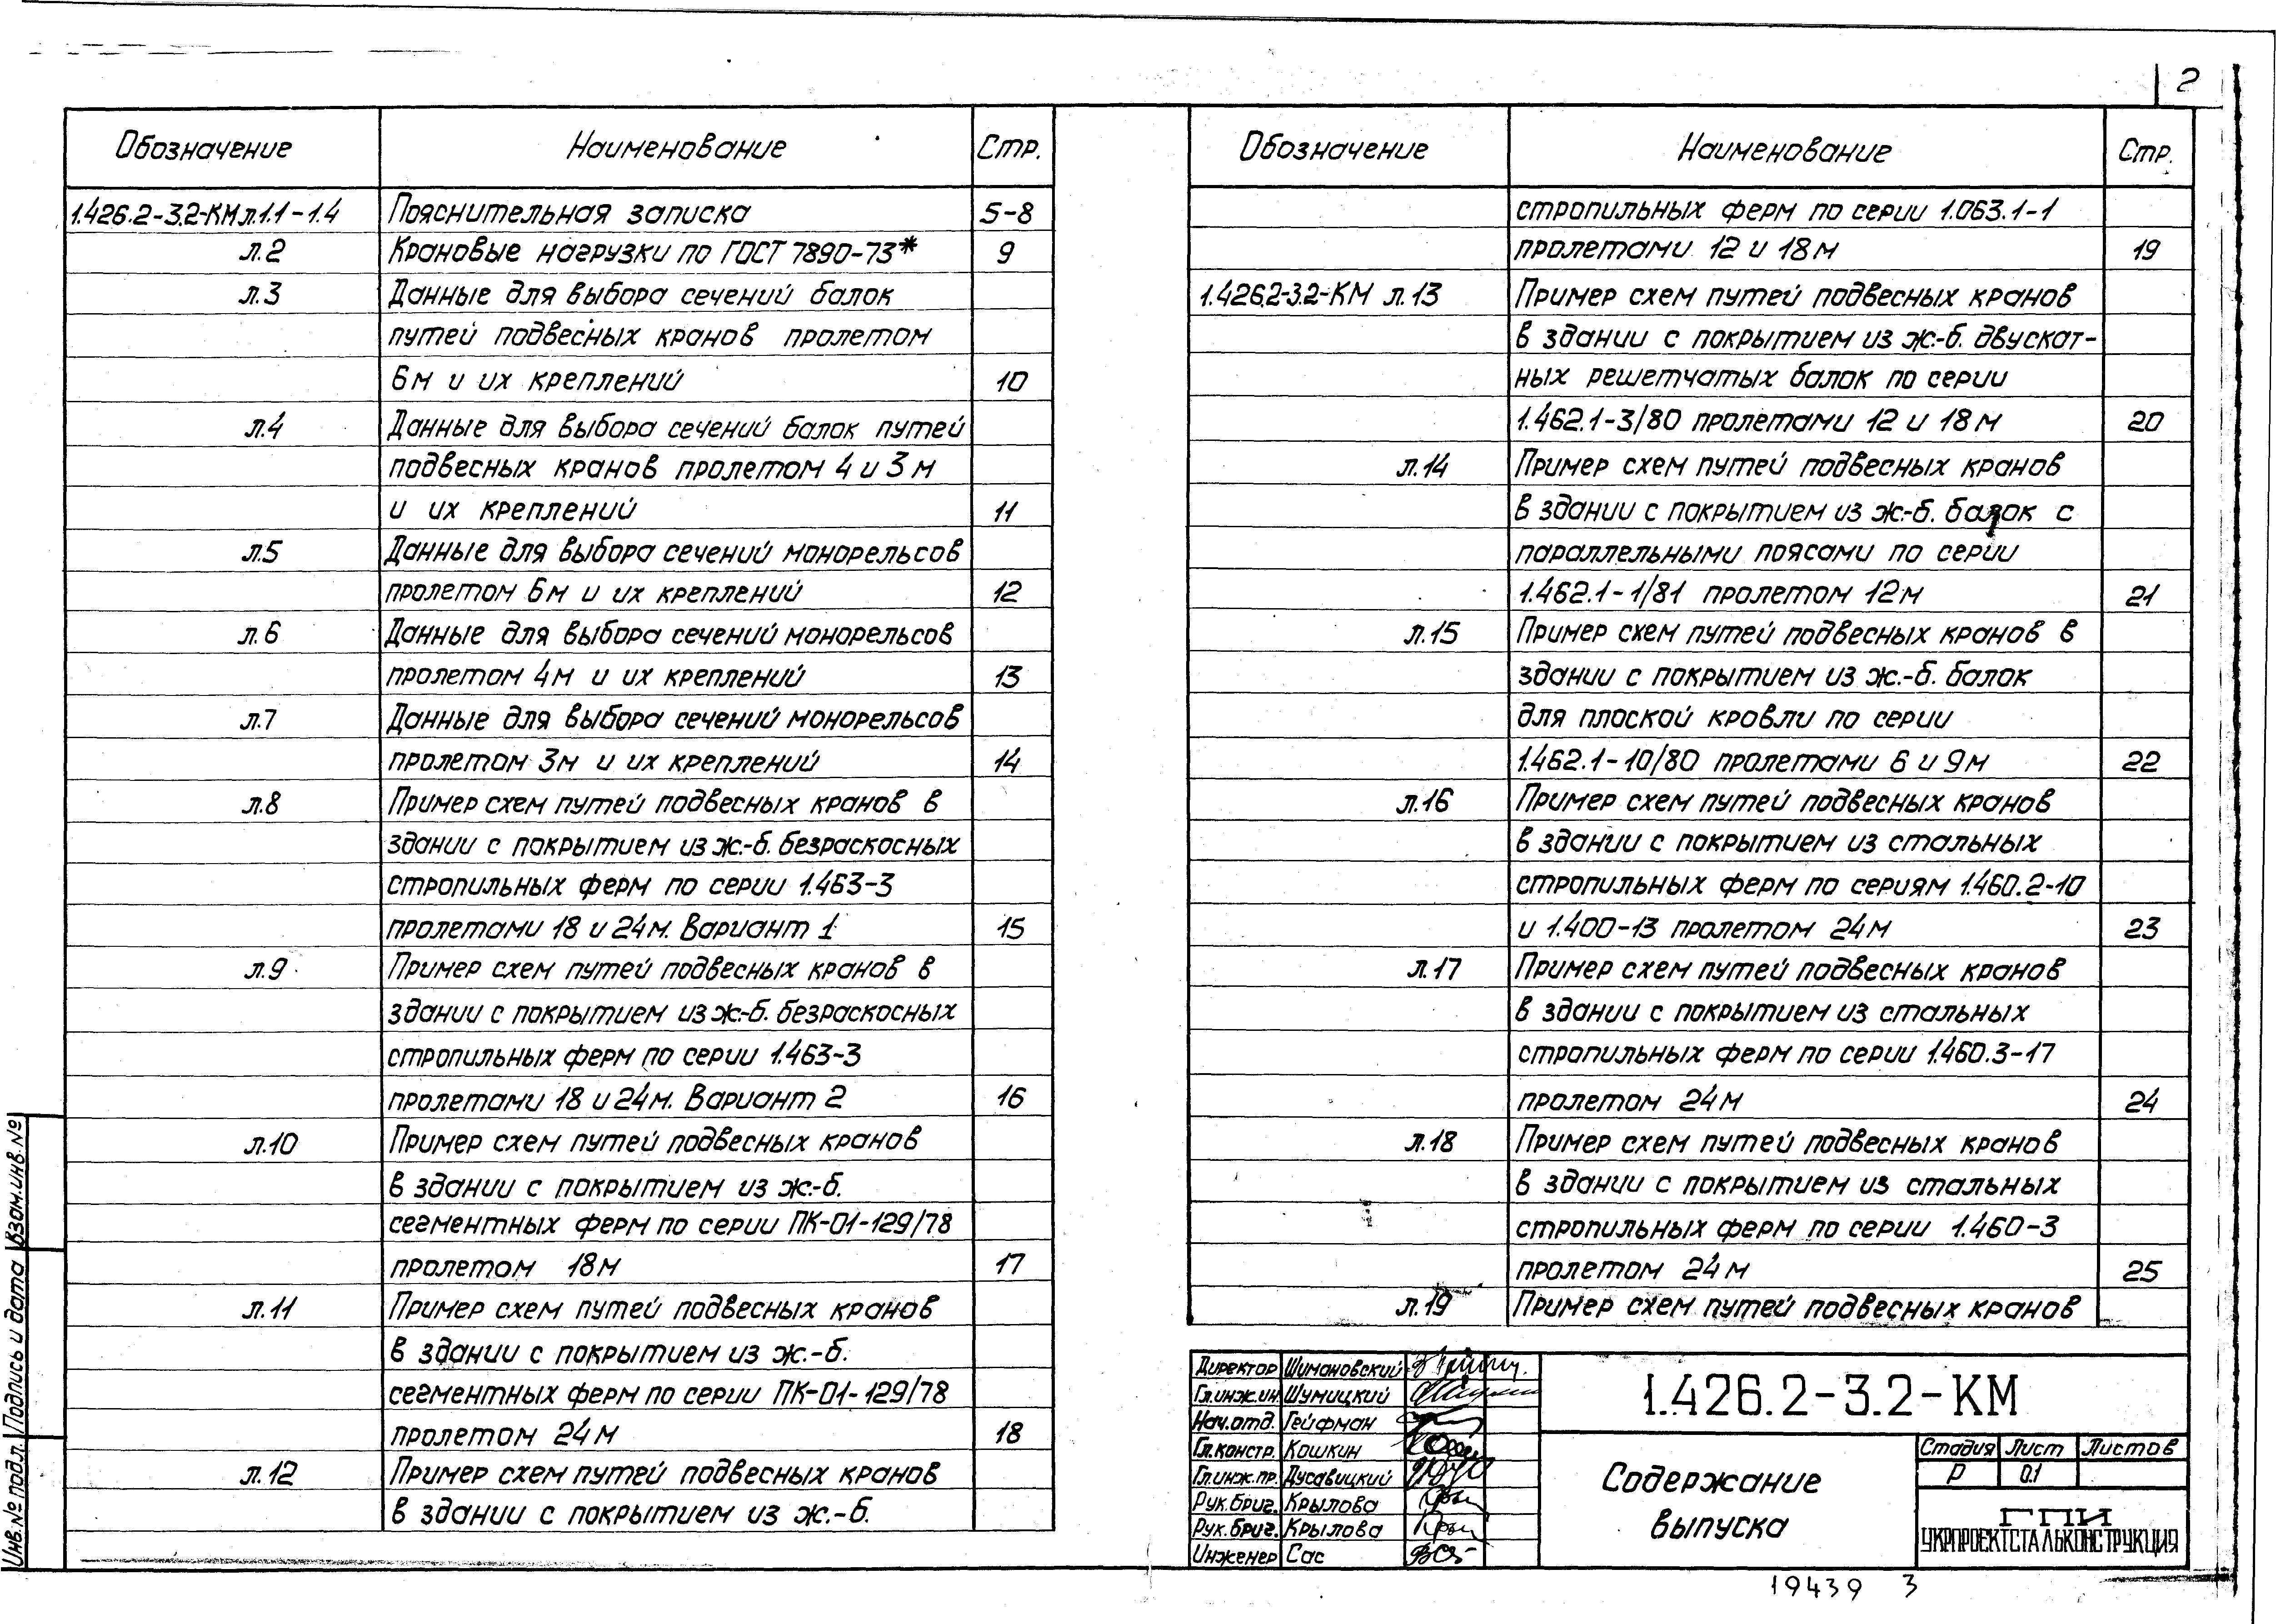 2
Обозначение Наименование Стр.
1.426.2-3.2-КМ л.1.1-1.4 Пояснительная записка 5-8
л.2 Крановые нагрузки по ГОСТ 7890-73* 9
л.3 Данные для выбора сечений балок
путей подвесных кранов пролетом
6м и их креплений 10
л.4 Данные для выбора сечений балок путей
подвесных кранов пролетом 4 и 3 м
и их креплений 11
л.5 Данные для выбора сечений монорельсов
пролетом 6м и их креплений 12
л.6 Данные для выбора сечений монорельсов
пролетом 4м и их креплений 13
л.7 Данные для выбора сечений монорельсов
пролетом 3м и их креплений 14
л.8 Пример схем путей подвесных кранов в
здании с покрытием из ж.-б. безраскосных
стропильных ферм по серии 1.463-3
пролетами 18 и 24м. Вариант 1 15
л.9 Пример схем путей подвесных кранов в
здании с покрытием из ж.-б. безраскосных
стропильных ферм по серии 1.463-3
пролетами 18 и 24м. Вариант 2 16
л.10 Пример схем путей подвесных кранов
в здании с покрытием из ж.-б.
сегментных ферм по серии ПК-01-129/78
пролетом 18м 17
л.11 Пример схем путей подвесных кранов
в здании с покрытием из ж.-б.
сегментных ферм по серии ПК-01-129/78
пролетом 24м 18
л.12 Пример схем путей подвесных кранов
в здании с покрытием из ж.-б.
Обозначение Наименование Стр.
стропильных ферм по серии 1.063.1-1
пролетами 12 и 18м 19
1.426.2-3.2-КМ л.13 Пример схем путей подвесных кранов
в здании с покрытием из ж.-б. двускат-
ных решетчатых балок по серии
1.462.1-3/80 пролетами 12 и 18 м 20
л.14 Пример схем путей подвесных кранов
в здании с покрытием из ж.-б. балок с
параллельными поясами по серии
1.462.1-1/81 пролетом 12м 21
л.15 Пример схем путей подвесных кранов в
здании с покрытием из ж.-б. балок
для плоской кровли по серии
1.462.1-10/80 пролетами 6 и 9м 22
л.16 Пример схем путей подвесных кранов
в здании с покрытием из стальных
стропильных ферм по сериям 1.460.2-10
и 1.400-13 пролетом 24м 23
л.17 Пример схем путей подвесных кранов
в здании с покрытием из стальных
стропильных ферм по серии 1.460.3-17
пролетом 24м 24
л.18 Пример схем путей подвесных кранов
в здании с покрытием из стальных
стропильных ферм по серии 1.460-3
пролетом 24м 25
л.19 Пример схем путей подвесных кранов
Директор Шимановский
Гл.инж.ин Шумицкий
Нач.отд. Гейфман
Гл.констр. Кошкин
Гл.инж.пр. Дусавицкий
Рук.бриг. Крылова
Рук.бриг. Крылова
Инженер Сас
1.426.2-3.2-КМ
Содержание
выпуска
Стадия Лист Листов
Р 0.1
ГПИ
УКРПРОЕКТСТАЛЬКОНСТРУКЦИЯ
19439 3
Инв.№ подл. Подпись и дата Взам.инв.№